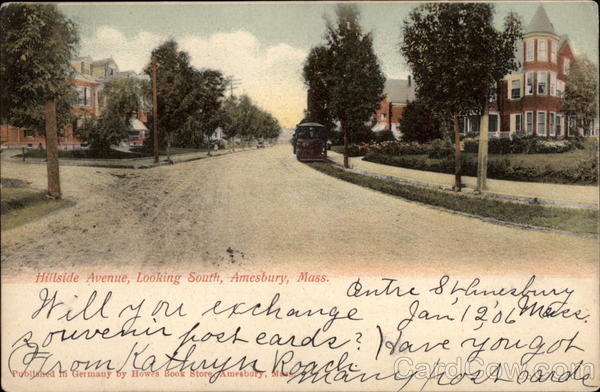 Hillside Avenue, Looking South, Amesbury, Mass.
Centre St. Amesbury
Jan 12, 06 Mass.
Will you exchange
souvenir post cards?
(From Kathryn Roach)
Have you got
many post cards
Published in Germany by Howe's Book Store, Amesbury, Mass.
CardCow.com